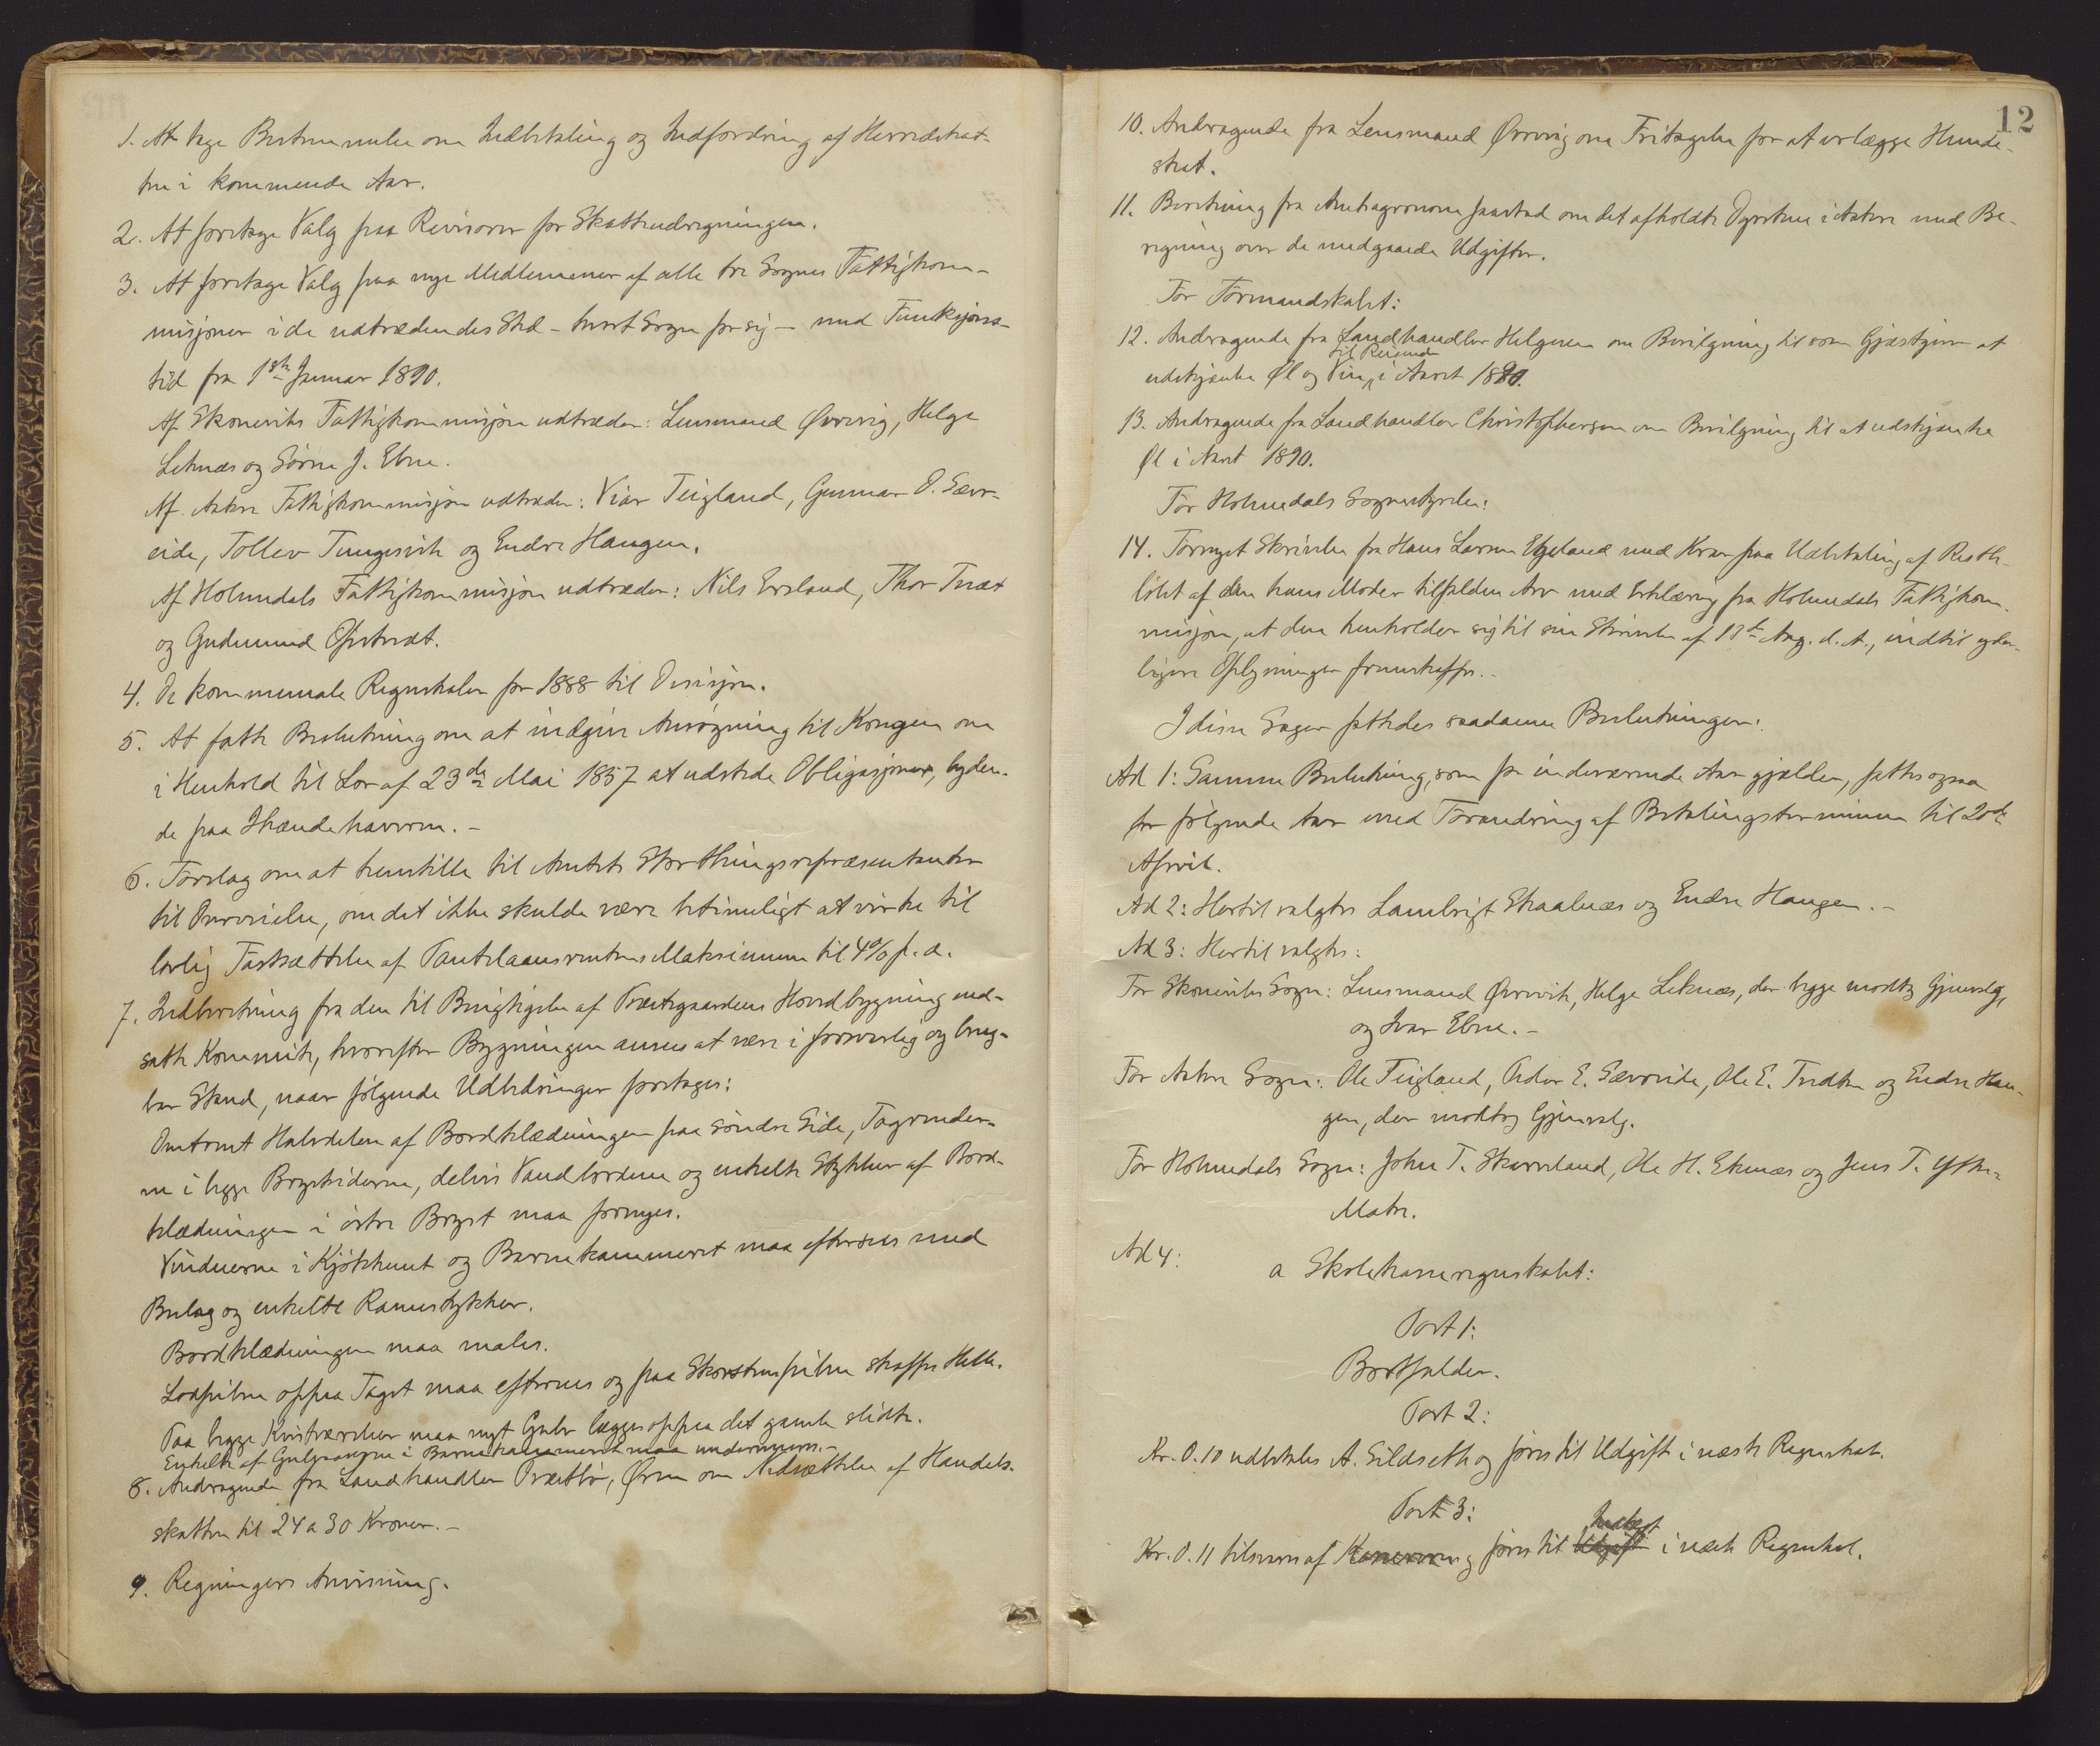 1. At tage Bestemmelse om Indbetaling og Indfordring af Herredsskat-
ten i kommende Aar.
2. At foretage Valg paa Revisorer for Skatteudregningen.
3. At foretage Valg paa nye Medlemmer af alle tre Sognes Fattigkom-
misjoner i de udtrædendes Sted - hvert Sogn for sig - med Funksjons-
tid fra 1ste Januar 1890.
Af Skonevits Fattigkommisjon udtræder: Lensmand Ørvvig, Helge
Leknæs og Sørne J. Ebne.
Af Aakre Fattigkommisjon udtræder: Viar Teigland, Gunnar O. Sæv-
eide, Tollev Tungesvik og Endre Haugen.
Af Holmedals Fattigkommisjon udtræder: Nils Ersland, Thor Tvæt
og Gudmund Opstvedt.
4. De kommunale Regnskaber for 1888 til Desisjon.
5. At fatte Beslutning om at indgive Ansøgning til Kongen om
i Henhold til Lov af 23de Mai 1857 at udstede Obligasjoner, lyden-
de paa Ihændehaveren. -
6. Forslag om at henstille til Amtets Storthingsrepræsentanter
til Overveielse, om det ikke skulde være betimeligt at virke til
lovlig Fastsættelse af Pantelaansrentens Maksimum til 4% p. a.
7. Indberetning fra den til Besigtigelse af Præstegaardens Hovedbygning ned-
satte Kommite, hvorefter Bygningen ansees at være i forsvarlig og brug-
bar Stand, naar følgende Udbedringer foretages:
Omtrent Halvdelen af Bordklædningen paa søndre Side, Tagrender-
ne i begge Brystsiderne, delvis Vandbordene og enkelte Stykker af Bord-
klædningen i østre Bryst maa fornyes.
Vinduerne i Kjøkkenet og Barnekammeret maa eftersees med
Beslag og enkelte Ramstykker.
Bordklædningen maa males.
Lodpiben oppaa Taget maa eftersees og paa Skorstenspiben skaffes Helle.
Paa begge Kvistværelser maa nyt Gulv lægges oppaa det gamle slidte.
Enkelte af Gulvaasene i Barnekammeret maa undermures. -
8. Andragende fra Landhandler Præstbø, Ølen om Nedsættelse af Handels-
skatten til 24 a 30 Kroner. -
9. Regningers Anvisning.
12
10. Andragende fra Lensmand Ørvvig om Fritagelse for at erlægge Hunde-
skat.
11. Beretning fra Amtsagronom Jaastad om det afholdte Dyrskue i Aakre med Be-
regning over de medgaaede Udgifter.
For Formandskabet:
12. Andragende fra Landhandler Helgesen om Bevilgning til som Gjæstgiver at
udskjænke Øl og Vin til Reisende i Aaret 1890.
13. Andragende fra Landhandler Christophersen om Bevilgning til at udskjænke
Øl i Aaret 1890.
For Holmedals Sognestyrelse:
14. Fornyet Skrivelse fra Hans Larsen Ekeland med Krav paa Udbetaling af Restbe-
løbet af den hans Moder tilfaldne Arv med Erklæring fra Holmedals Fattigkom-
misjon, at den henholder sig til sin Skrivelse af 17de Aug. d. A., indtil yder-
ligere Oplysninger fremskaffes. -
I disse Sager fattedes saadanne Beslutninger:
Ad 1: Samme Beslutning, som for indeværende Aar gjælder, fattes ogsaa
for følgende Aar med Forandring af Betalingsterminen til 20de
April.
Ad 2: Hertil valgtes Lambrigt Skaalnæs og Endre Haugen. -
Ad 3: Hertil valgtes:
For Skonevits Sogn: Lensmand Ørvvik, Helge Leknæs, der begge modtog Gjenvalg,
og Ivar Ebne. -
For Aakre Sogn: Ole Teigland, Peder E. Sævreide, Ole E. Tveiten og Endre Hau-
gen, der modtog Gjenvalg.
For Holmedals Sogn: John T. Skarveland, Ole H. Eknæs og Jens T. Yttre-
Matre.
Ad 4:
a Skolekasseregnskabet:
Post 1:
Bortfalder.
Post 2:
Kr. 0.10 udbetales A. Eildseth og føres til Udgift i næste Regnskab.
Post 3:
Kr. 0.11 tilsvares af Kassereren og føres til Udgift Indtægt i næste Regnskab.